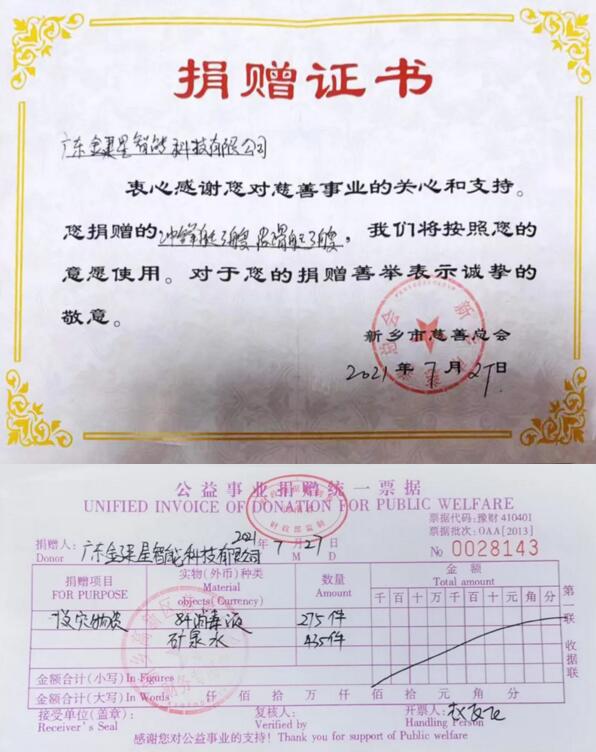 捐赠证书
广东金莱星智能科技有限公司
衷心感谢您对慈善事业的关心和支持。
您捐赠的冲锋艇3艘 皮滑艇3艘，我们将按照您的
意愿使用。对于您的捐赠善举表示诚挚的
敬意。
新乡市慈善总会
2021年7月27日
公益事业捐赠统一票据
UNIFIED INVOICE OF DONATION FOR PUBLIC WELFARE
财政部监制
票据代码:豫财 410401
票据批次:OAA[2013]
捐赠人: 广东金莱星智能科技有限公司 2021年7月27日
Donor M D
№ 0028143
捐赠项目 实物(外币)种类 数量 金额
FOR PURPOSE Material objects(Currency) Amount Total amount
千 百 十 万 千 百 十 元 角 分
救灾物资 84消毒液 275件
矿泉水 435件
金额合计(小写) In Figures
金额合计(大写) In Words 仟 佰 拾 万 仟 佰 拾 元 角 分
第一联 收据联
接受单位(盖章): 复核人: 开票人:
Receiver's Seal Verified by Handling Person
感谢您对公益事业的支持! Thank you for support of Public welfare